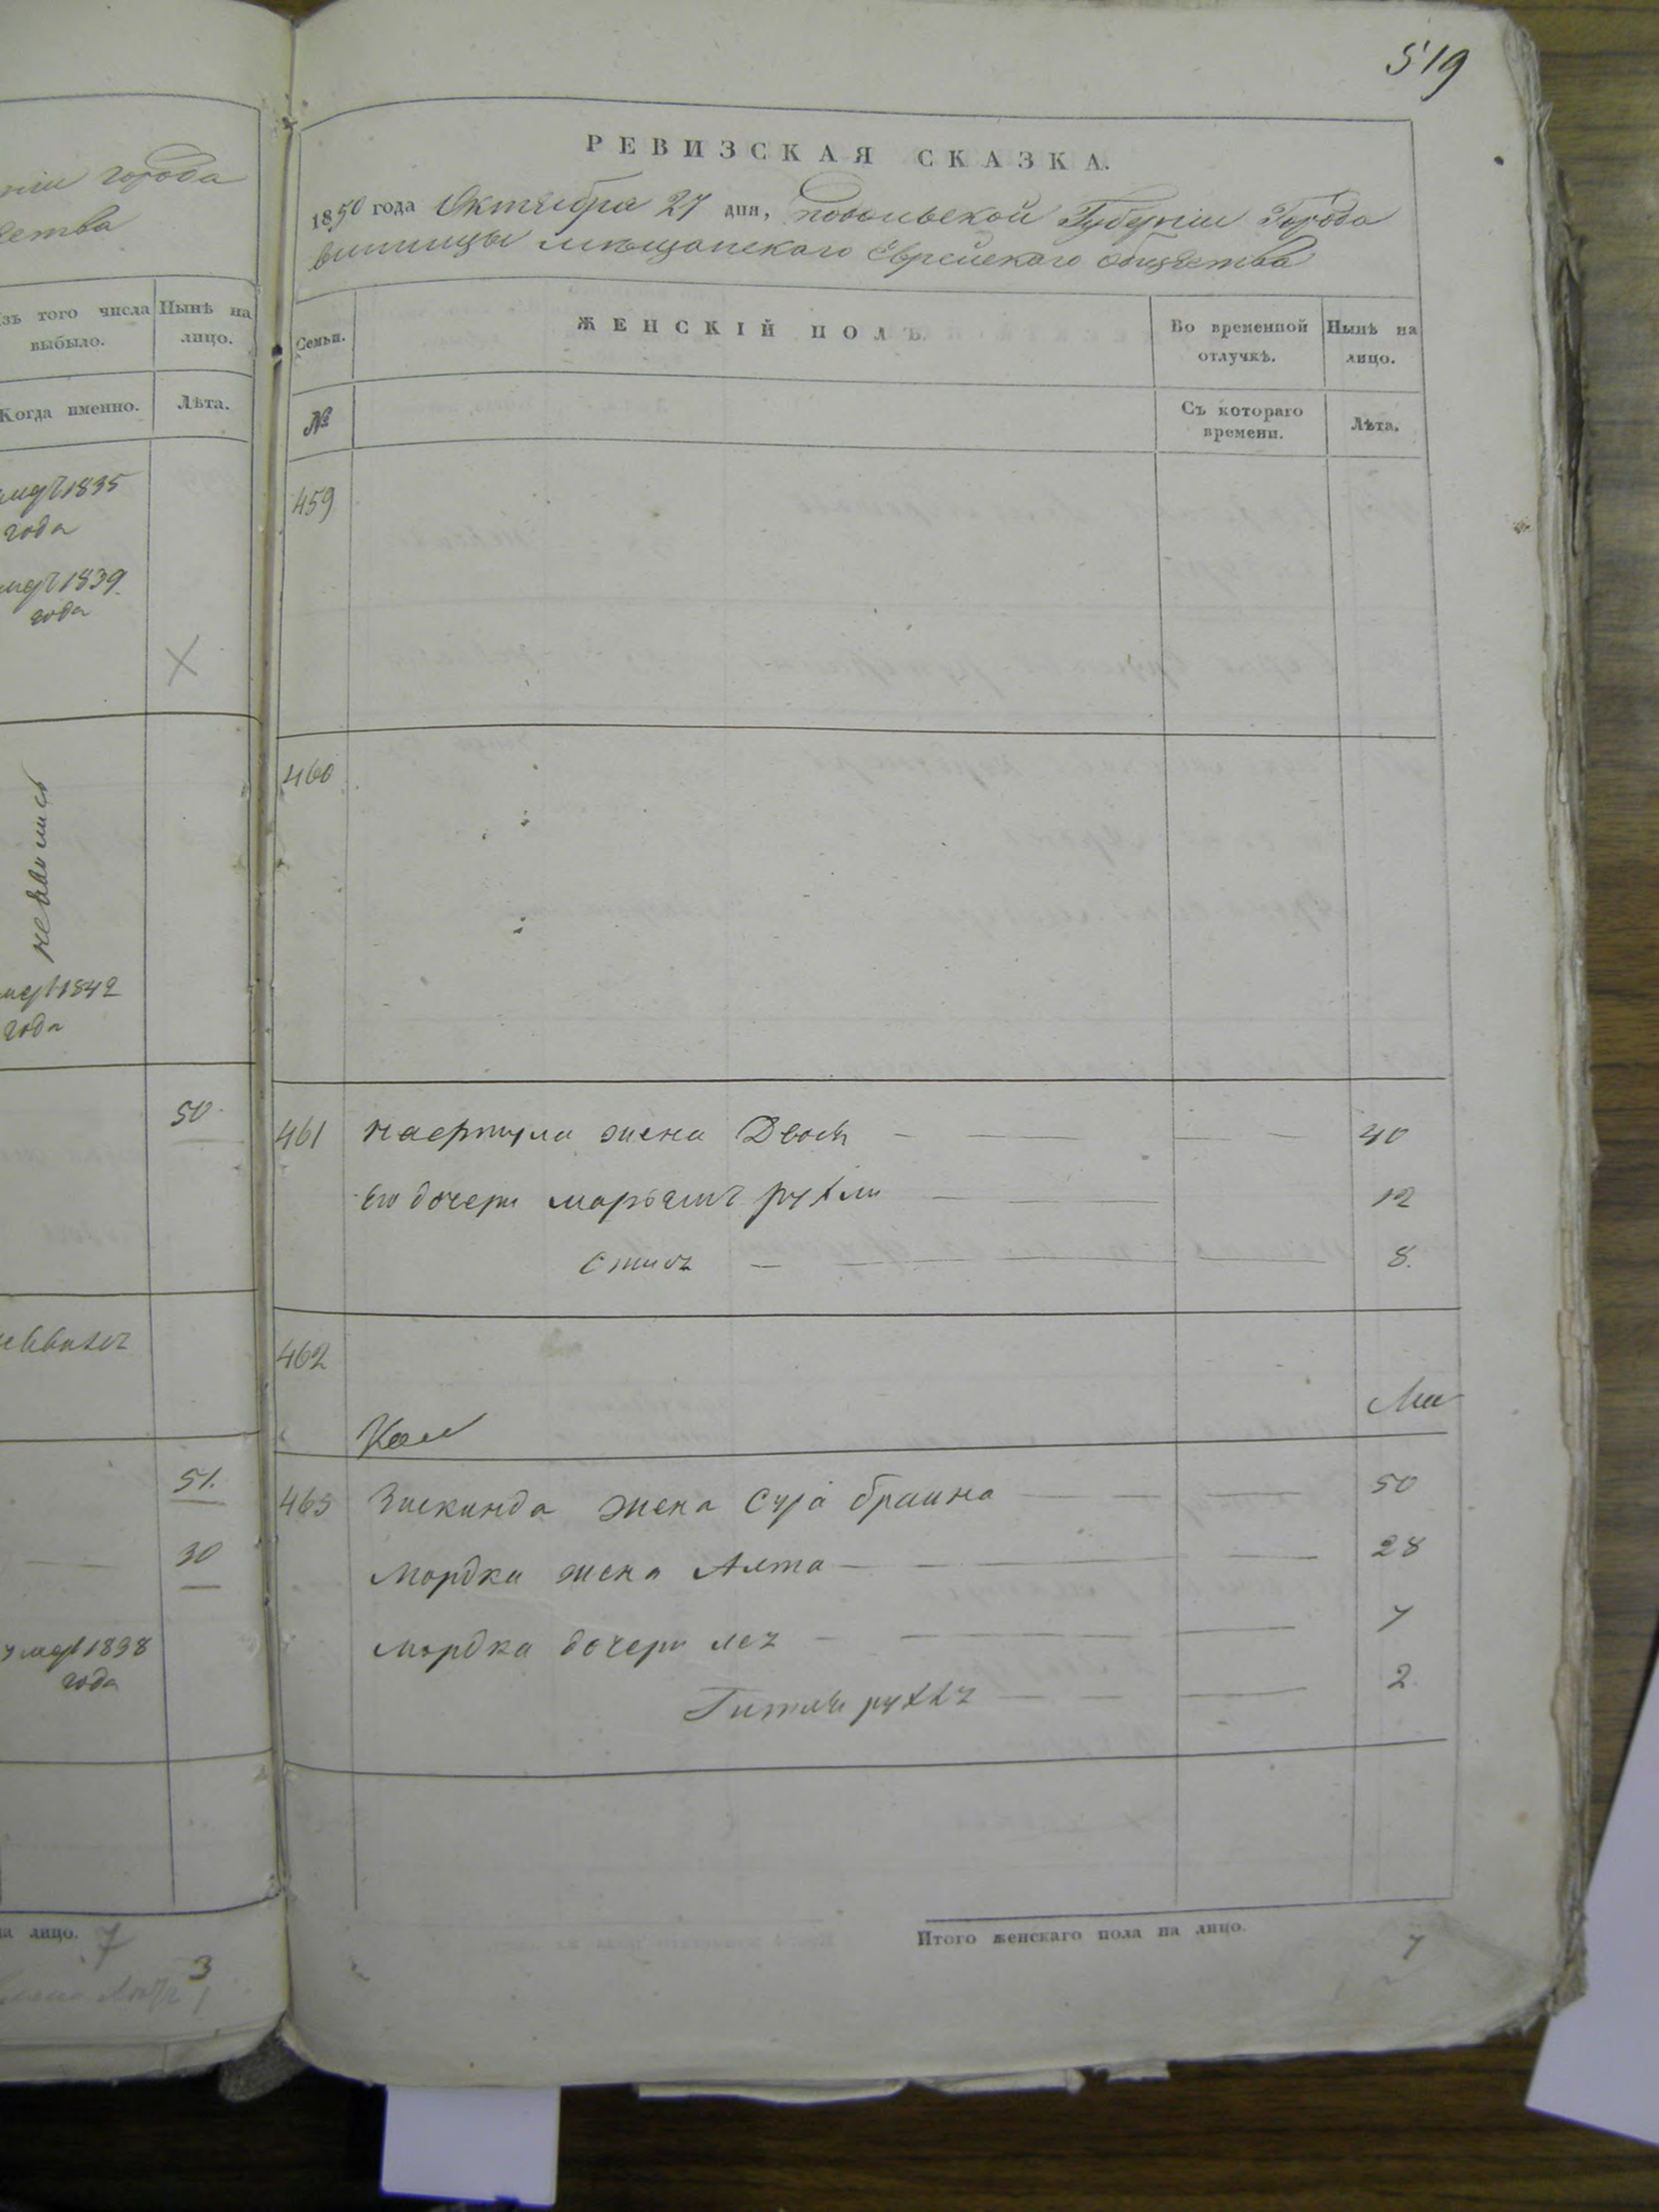 519
города
РЕВИЗСКАЯ СКАЗКА.
1850 года Октября 27 дня, Подольской Губерніи Города
Винницы мѣщанскаго Еврейскаго общества
Изъ того числа выбыло.
Нынѣ на лицо.
Когда именно.
Лѣта.
Семьи.
ЖЕНСКІЙ ПОЛЪ.
Во временной отлучкѣ.
Нынѣ на лицо.
№
Съ котораго времени.
Лѣта.
1835
года
1839
года
459
460
1842
года
50
461 жена Двося 40
Его дочери Марьямъ рухля 12
8.
462
51. 463 Зискинда жена Сура браина 50
30 Мордка жена Алта 28
Мордка дочери лея 7
умер 1838 года
Гитля рухля 2
на лицо. 7
3
Итого женскаго пола на лицо.
7